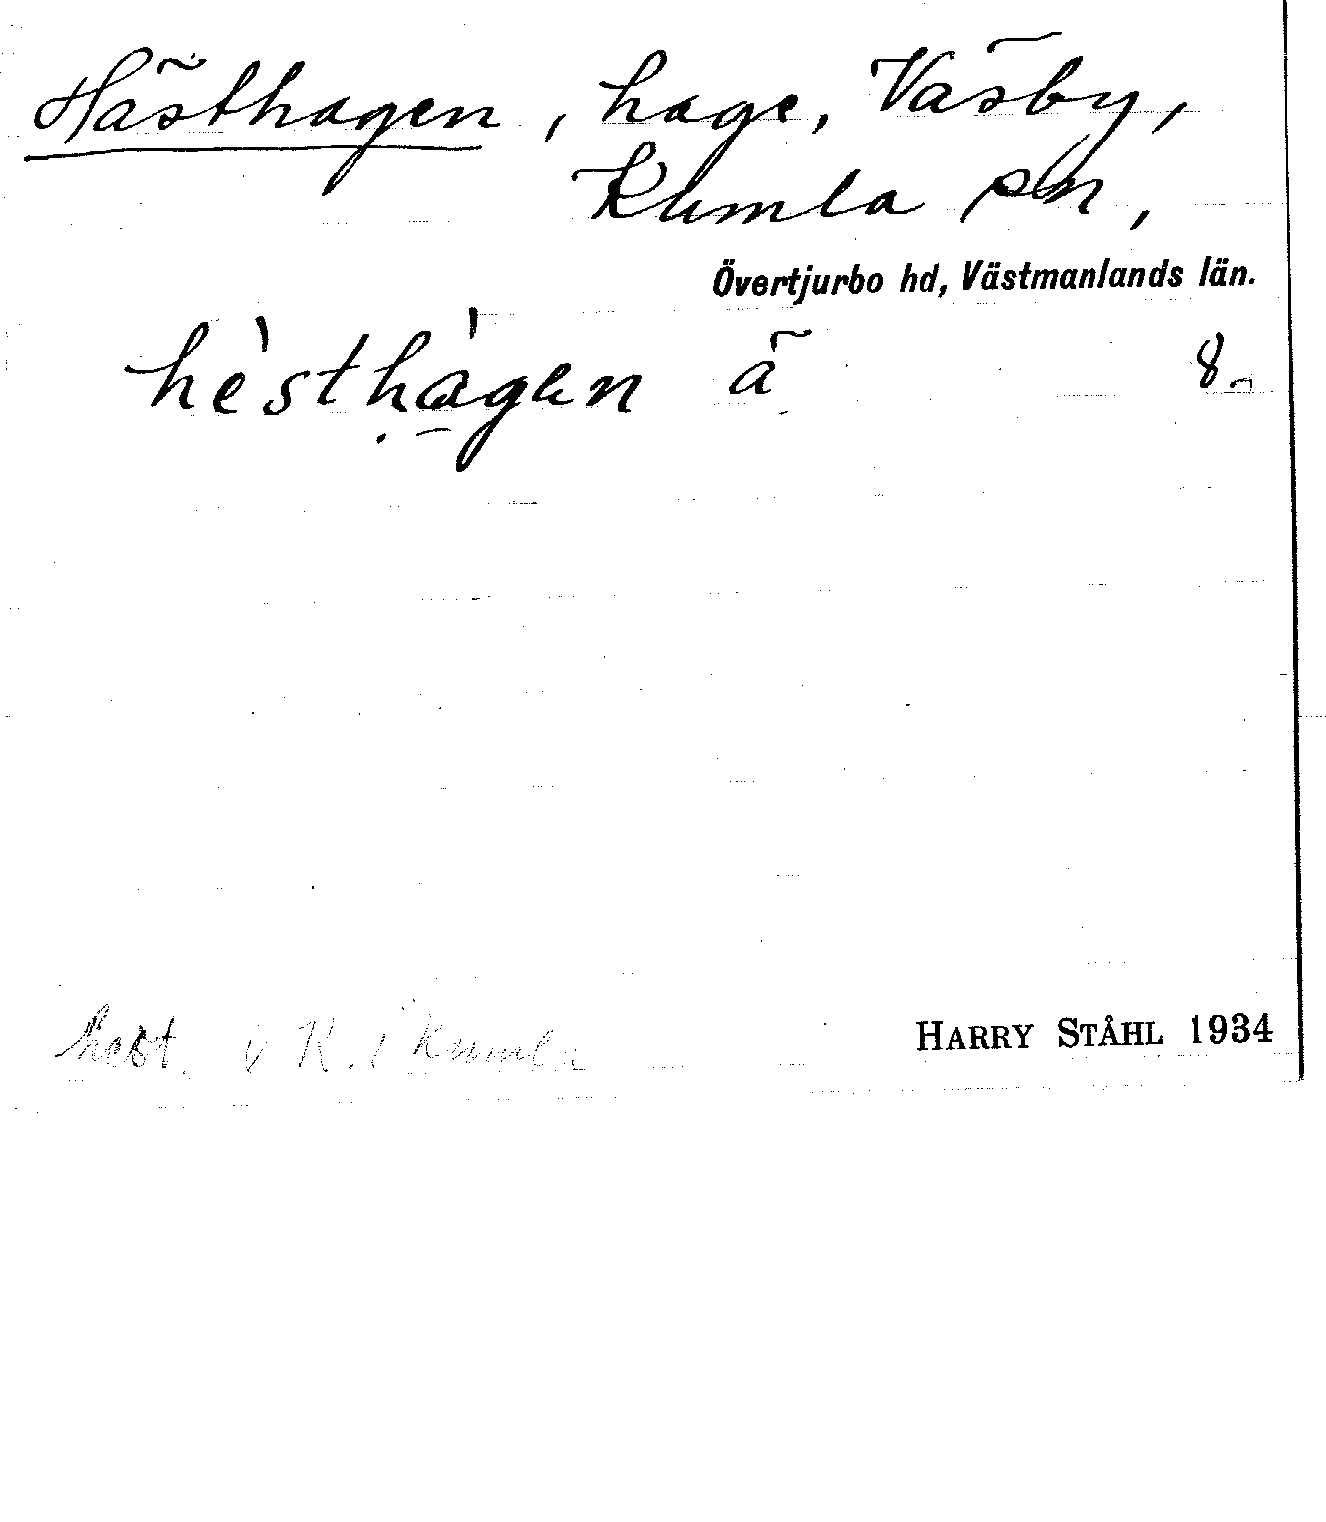 Hästhagen, hage, Väsby,
Kumla sn,
Övertjurbo hd, Västmanlands län.
hèsthágen ä 8
hest. v K. i Kumla
HARRY STÅHL 1934